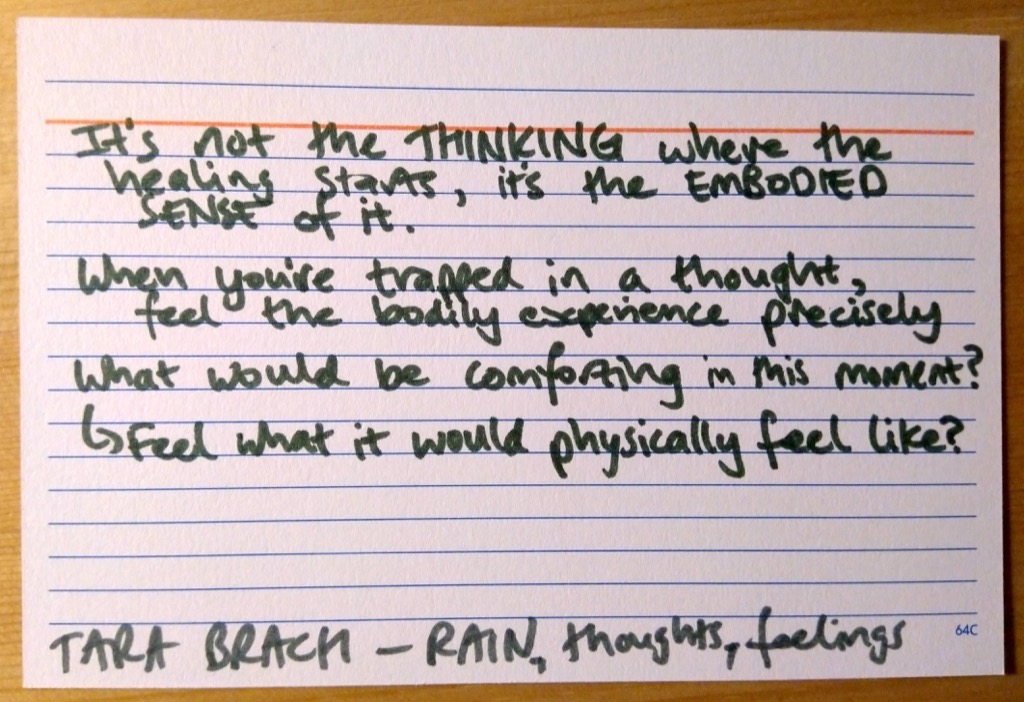 It's not the THINKING where the
healing starts, it's the EMBODIED
SENSE of it.
When you're trapped in a thought,
feel the bodily experience precisely
What would be comforting in this moment?
↳ Feel what it would physically feel like?
TARA BRACH – RAIN, thoughts, feelings
64C